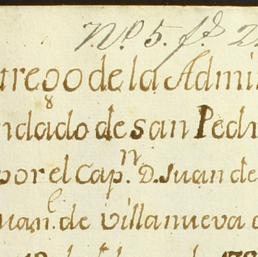 N.º 5. f.º 2
trego de la Admi
ndado de san Pedr
por el Cap.n D. Juan de
uan. de Villanueva